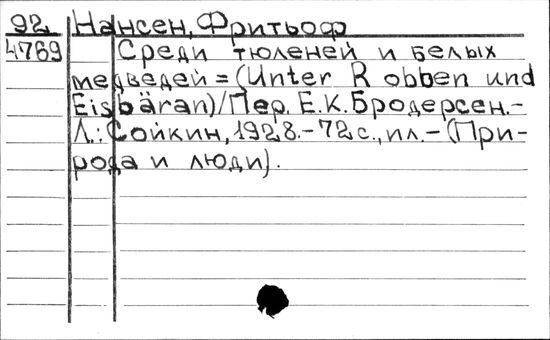 92 Нансен, Фритьоф
4769 Среди тюленей и белых
медведей = (Unter R obben und
Eisbäran)/Пер. Е.К. Бродерсен.-
Л.: Сойкин, 1928.-72с., ил.-(При-
рода и люди).